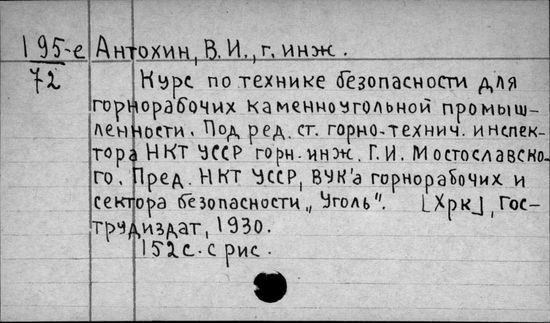 195-е Антохин, В.И., г. инж.
72 Курс по технике безопасности для
горнорабочих каменноугольной промыш-
ленности. Под ред. ст. горно-технич. инспек-
тора НКТ УССР горн. инж. Г.И. Мостославско-
го. Пред. НКТ УССР, ВУК'а горнорабочих и
сектора безопасности „Уголь". [Хрк], Гос-
трудиздат, 1930.
152с. с рис.